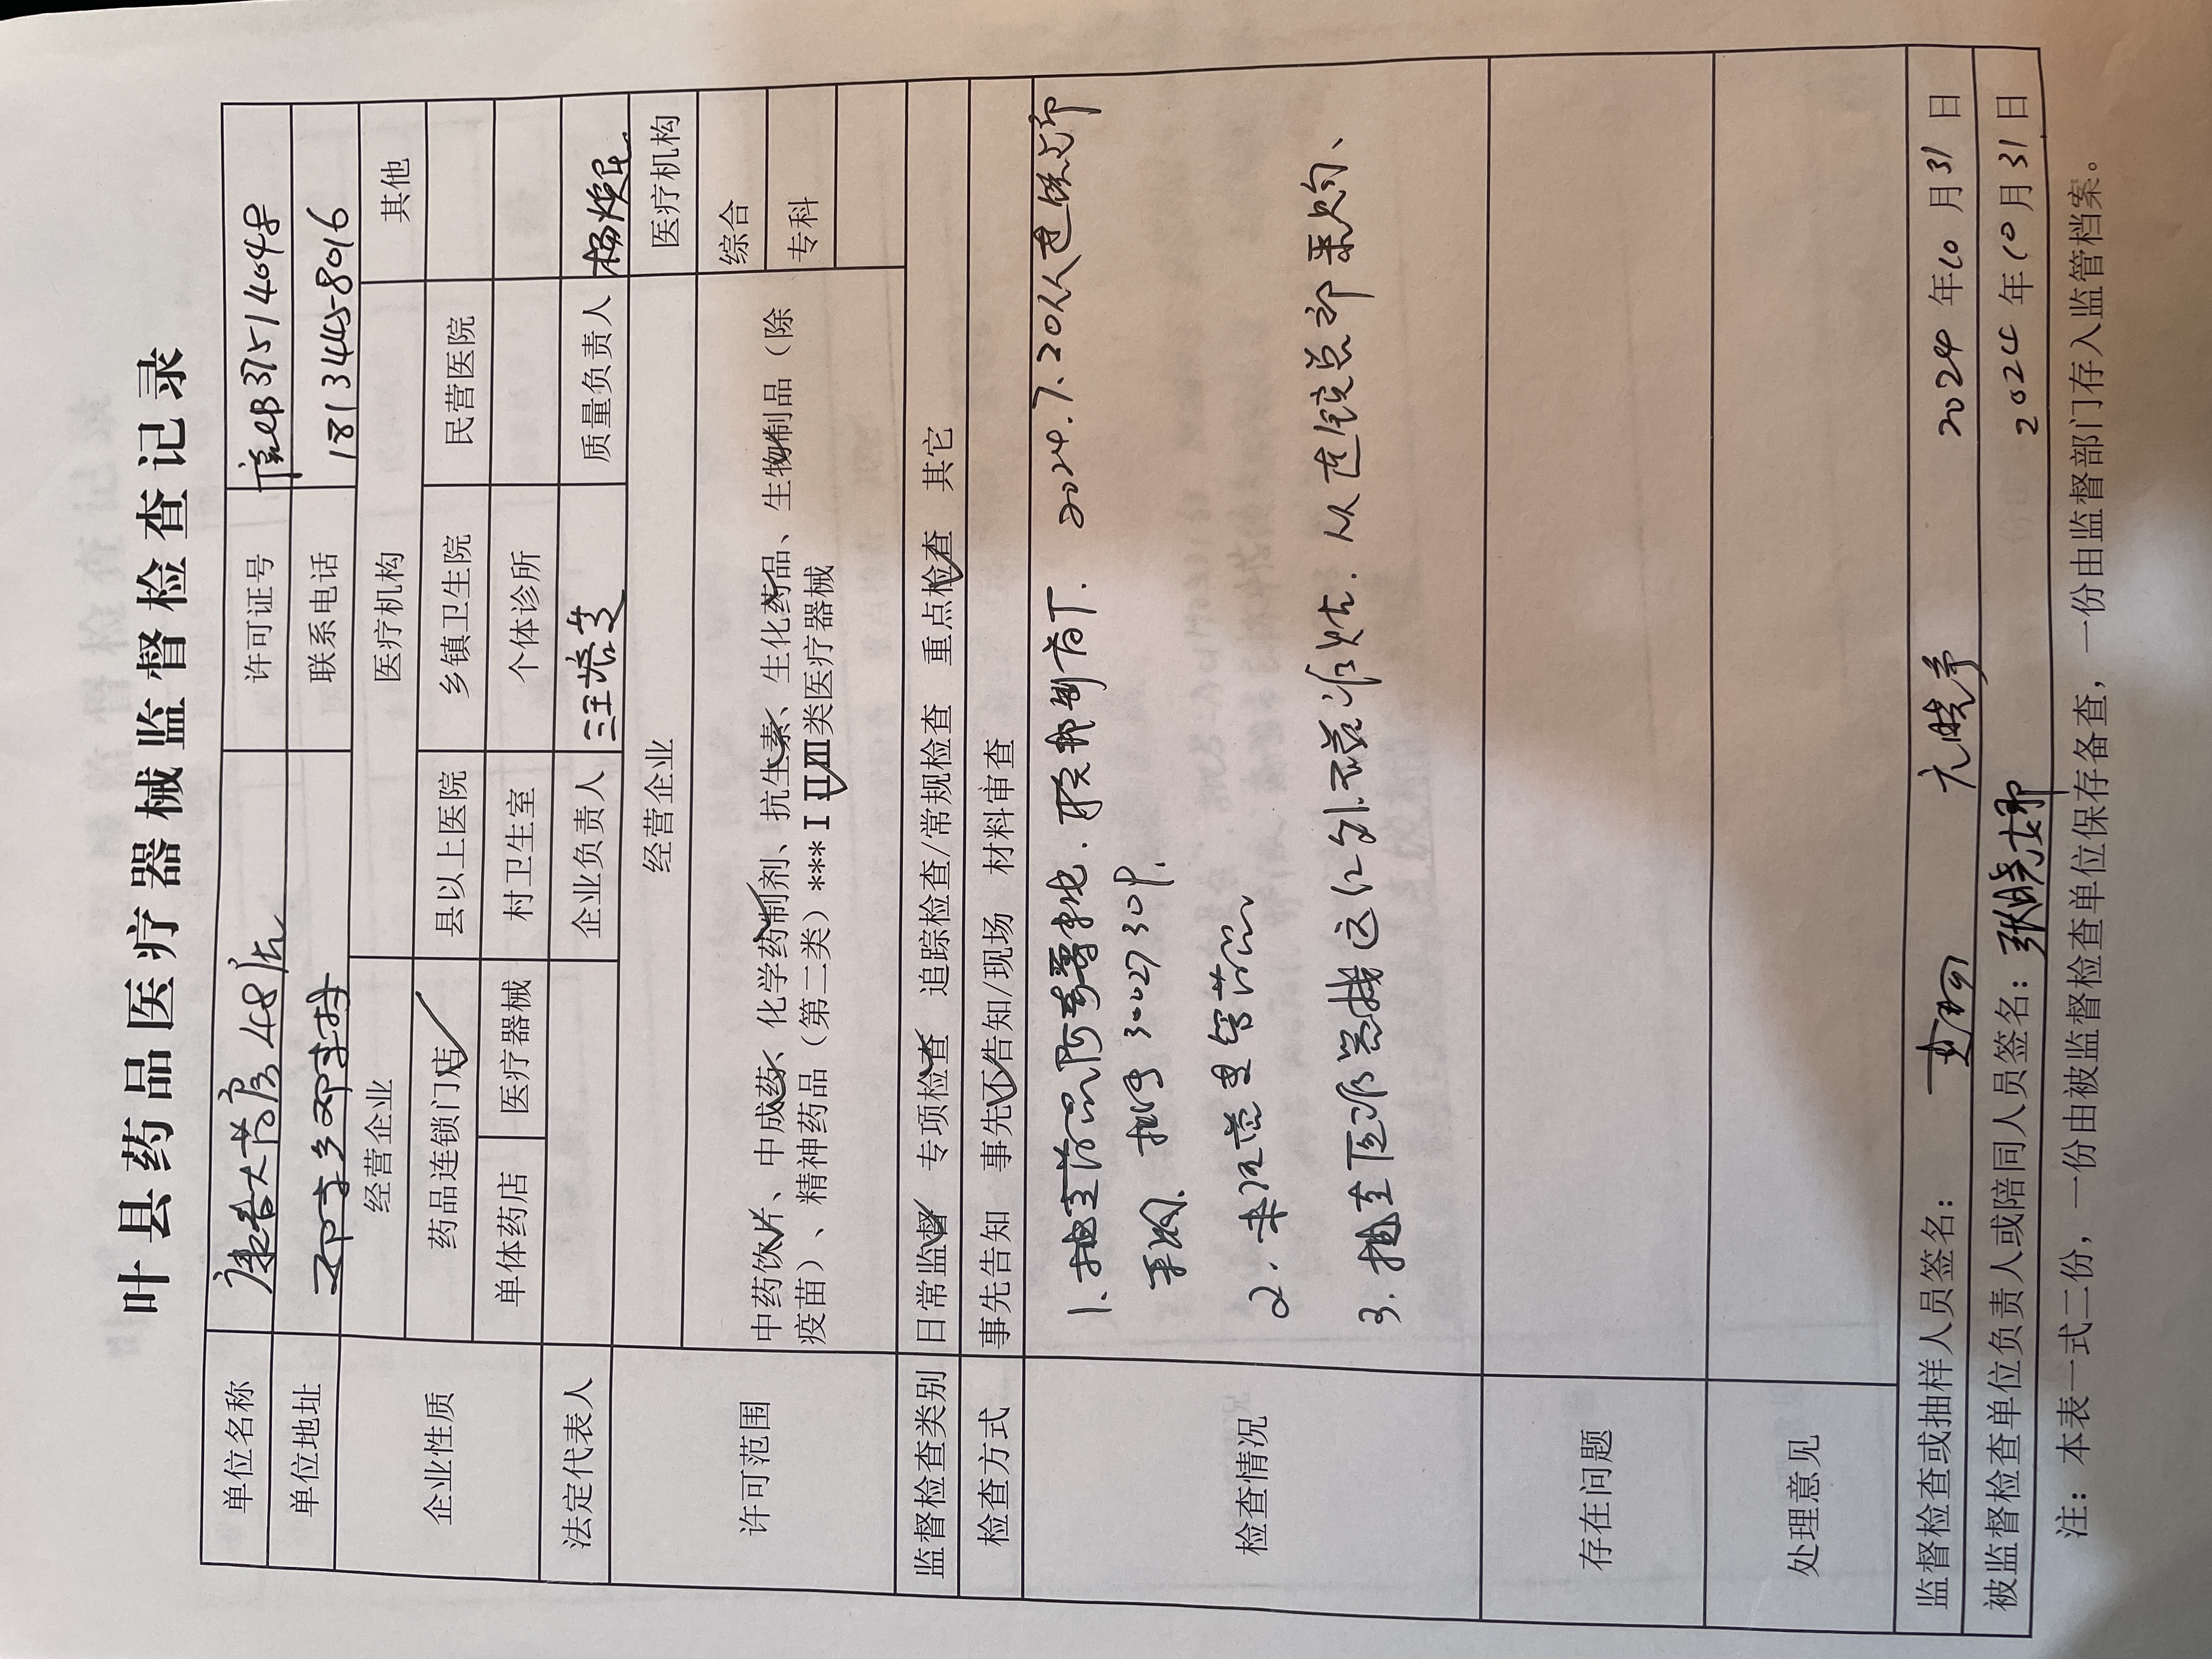 叶县药品医疗器械监督检查记录
单位名称 康者大药房48店 许可证号 豫CB37514048
单位地址 邓李乡邓李村 联系电话 18134458016
企业性质 经营企业 医疗机构 其他
药品连锁门店 县以上医院 乡镇卫生院 民营医院
单体药店 医疗器械 村卫生室 个体诊所
法定代表人 企业负责人 汪培芝 质量负责人 杨焕民
许可范围 经营企业 医疗机构
中药饮片、中成药、化学药制剂、抗生素、生化药品、生物制品（除 综合
疫苗）、精神药品（第二类）***ⅠⅡⅢ类医疗器械 专科
监督检查类别 日常监督 专项检查 追踪检查/常规检查 重点检查 其它
检查方式 事先告知 事先不告知/现场 材料审查
检查情况
1. 抽查药品阿莫 . 联邦制药厂. 2024.7.20从连锁总部
采购. 批号 30027309.
2. 未 管药品
3. 抽查医疗器械 红外 治疗 . 从连锁总部采购、
存在问题
处理意见
监督检查或抽样人员签名： 亢晓 2024年10月31日
被监督检查单位负责人或陪同人员签名：张晓娜 2024年10月31日
注：本表一式二份，一份由被监督检查单位保存备查，一份由监督部门存入监管档案。